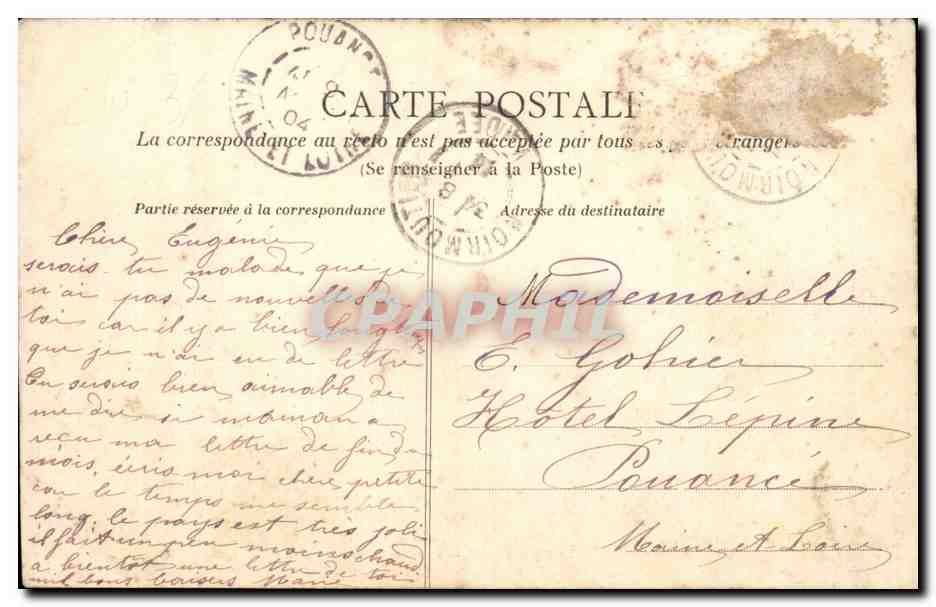 POUANCÉ
MAINE-ET-LOIRE
04
CARTE POSTALE
La correspondance au recto n'est pas acceptée par tous les pays étrangers
(Se renseigner à la Poste)
NOIRMOUTIER
VENDÉE
NOIRMOU
Partie réservée à la correspondance
Adresse du destinataire
Chère Eugénie
serais-tu malade que je
n'ai pas de nouvelles de
toi car il y a bien longtemps
que je n'ai eu de lettre
tu serais bien aimable de
me dire si maman a
reçu ma lettre de fin du
mois, écris moi chère petite
car le temps me semble
long, le pays est très joli
il fait un peu moins chaud
a bientôt une lettre de toi
mil bons baisers Marie
Mademoiselle
E. Gohier
Hôtel Lépine
Pouancé
Maine et Loire
CPAPHIL